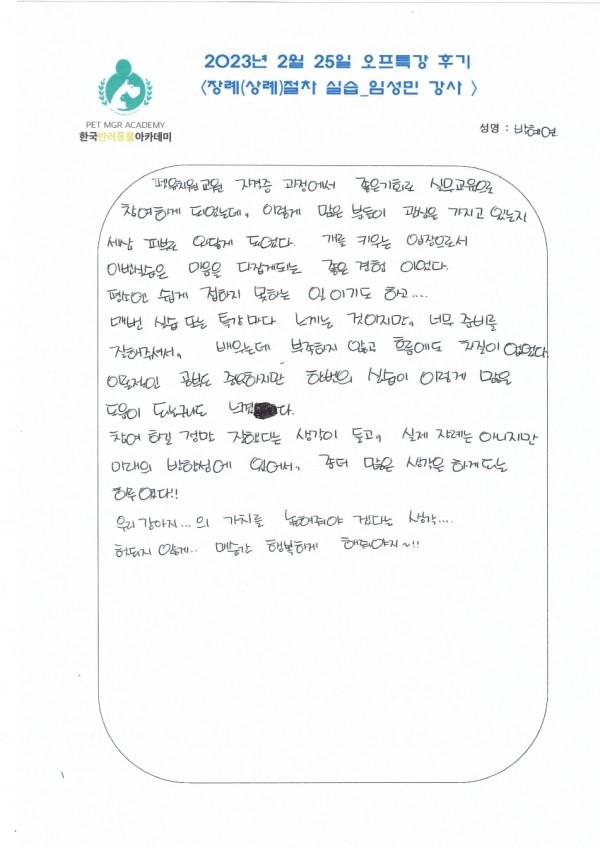 2023년 2월 25일 오프특강 후기
<장례(상례)절차 실습_임성민 강사 >
PET MGR ACADEMY
한국반려동물아카데미
성명 : 박현연
평생교육원 자격증 과정에서 좋은기회로 실무교육으로
참여하게 되었는데, 이렇게 많은 분들이 관심을 가지고 있는지
세삼 피부로 와닿게 되었다. 개를 키우는 입장으로서
이번실습은 마음을 다잡게되는 좋은 경험 이었다.
평소엔 쉽게 접하지 못하는 일 이기도 하고....
매번 실습 또는 특강마다 느끼는 것이지만, 너무 준비를
잘해주셔서, 배우는데 부족하지 않고 흐름에도 차질이 없었다.
이론적인 공부도 중요하지만 한번의 실습이 이렇게 많은
도움이 되는구나도 느꼈다.
참여 하길 정말 잘했다는 생각이 들고, 실제 장례는 아니지만
미래의 방향성에 있어서, 좀더 많은 생각을 하게되는
하루 였다!!
우리 강아지...의 가치를 높여줘야 겠다는 생각....
헛되지 않게.. 매순간 행복하게 해줘야지~!!